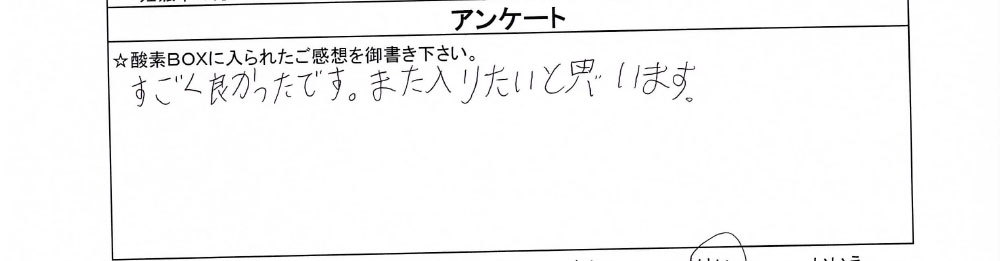 アンケート
☆酸素BOXに入られたご感想を御書き下さい。
すごく良かったです。また入りたいと思います。